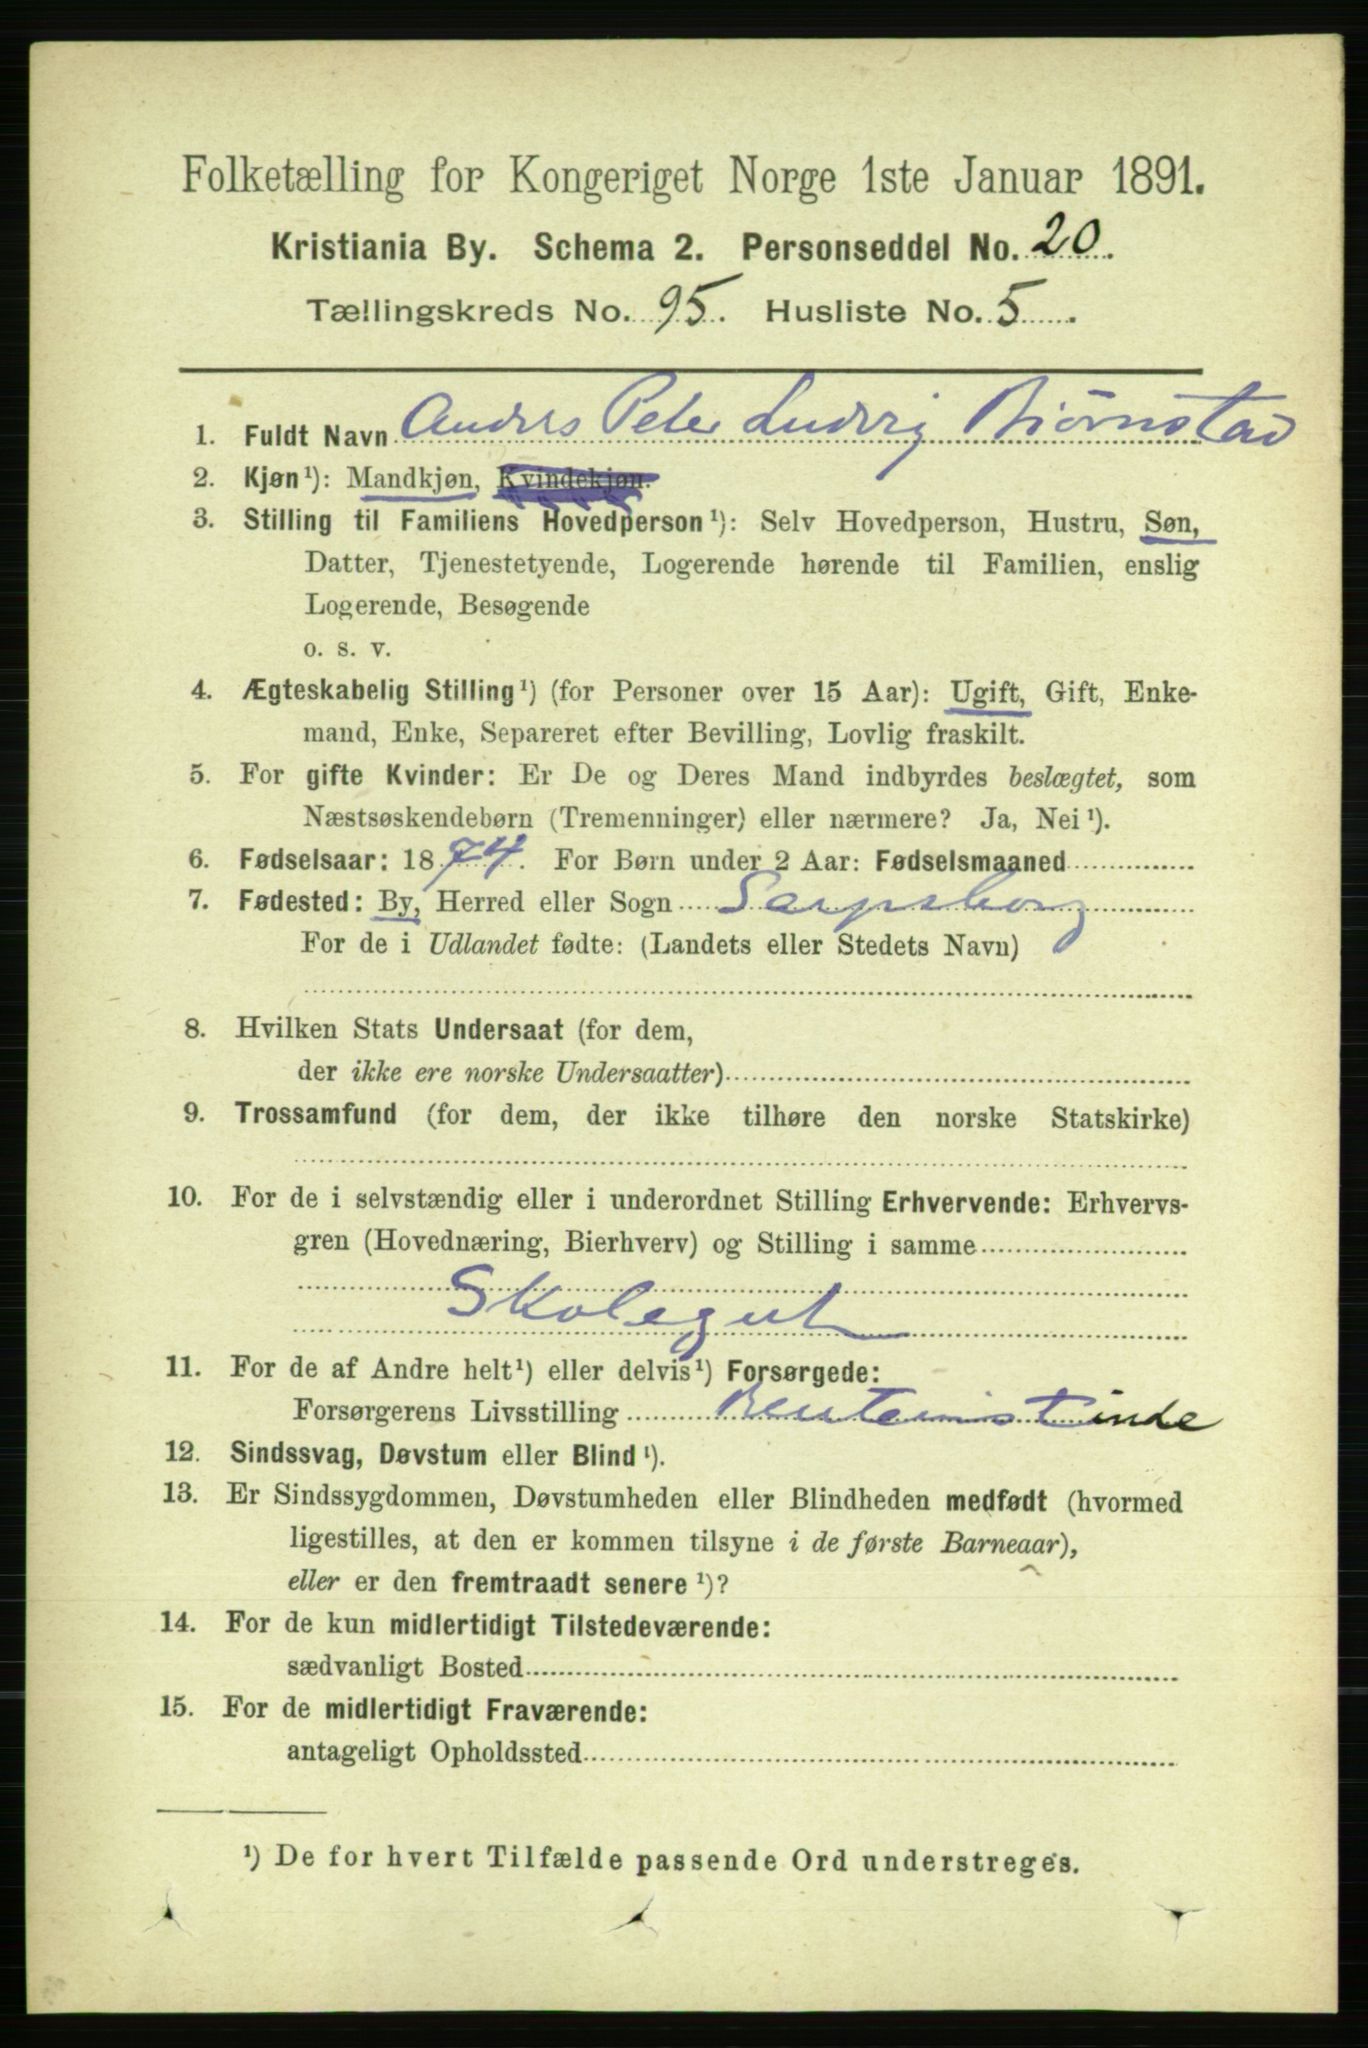 Folketælling for Kongeriget Norge 1ste Januar 1891.
Kristiania By. Schema 2. Personseddel No. 20.
Tællingskreds No. 95. Husliste No. 5.
1. Fuldt Navn Anders Peter Ludvig Biørnstad
2. Kjøn¹): Mandkjøn, Kvindekjøn.
3. Stilling til Familiens Hovedperson¹): Selv Hovedperson, Hustru, Søn,
Datter, Tjenestetyende, Logerende hørende til Familien, enslig
Logerende, Besøgende
o. s. v.
4. Ægteskabelig Stilling¹) (for Personer over 15 Aar): Ugift, Gift, Enke-
mand, Enke, Separeret efter Bevilling, Lovlig fraskilt.
5. For gifte Kvinder: Er De og Deres Mand indbyrdes beslægtet, som
Næstsøskendebørn (Tremenninger) eller nærmere? Ja, Nei¹).
6. Fødselsaar: 1874. For Børn under 2 Aar: Fødselsmaaned
7. Fødested: By, Herred eller Sogn Sarpsborg
For de i Udlandet fødte: (Landets eller Stedets Navn)
8. Hvilken Stats Undersaat (for dem,
der ikke ere norske Undersaatter)
9. Trossamfund (for dem, der ikke tilhøre den norske Statskirke)
10. For de i selvstændig eller i underordnet Stilling Erhvervende: Erhvervs-
gren (Hovednæring, Bierhverv) og Stilling i samme
Skolegut
11. For de af Andre helt¹) eller delvis¹) Forsørgede:
Forsørgerens Livsstilling
12. Sindssvag, Døvstum eller Blind¹).
13. Er Sindssygdommen, Døvstumheden eller Blindheden medfødt (hvormed
ligestilles, at den er kommen tilsyne i de første Barneaar),
eller er den fremtraadt senere¹)?
14. For de kun midlertidigt Tilstedeværende:
sædvanligt Bosted
15. For de midlertidigt Fraværende:
antageligt Opholdssted
¹) De for hvert Tilfælde passende Ord understreges.